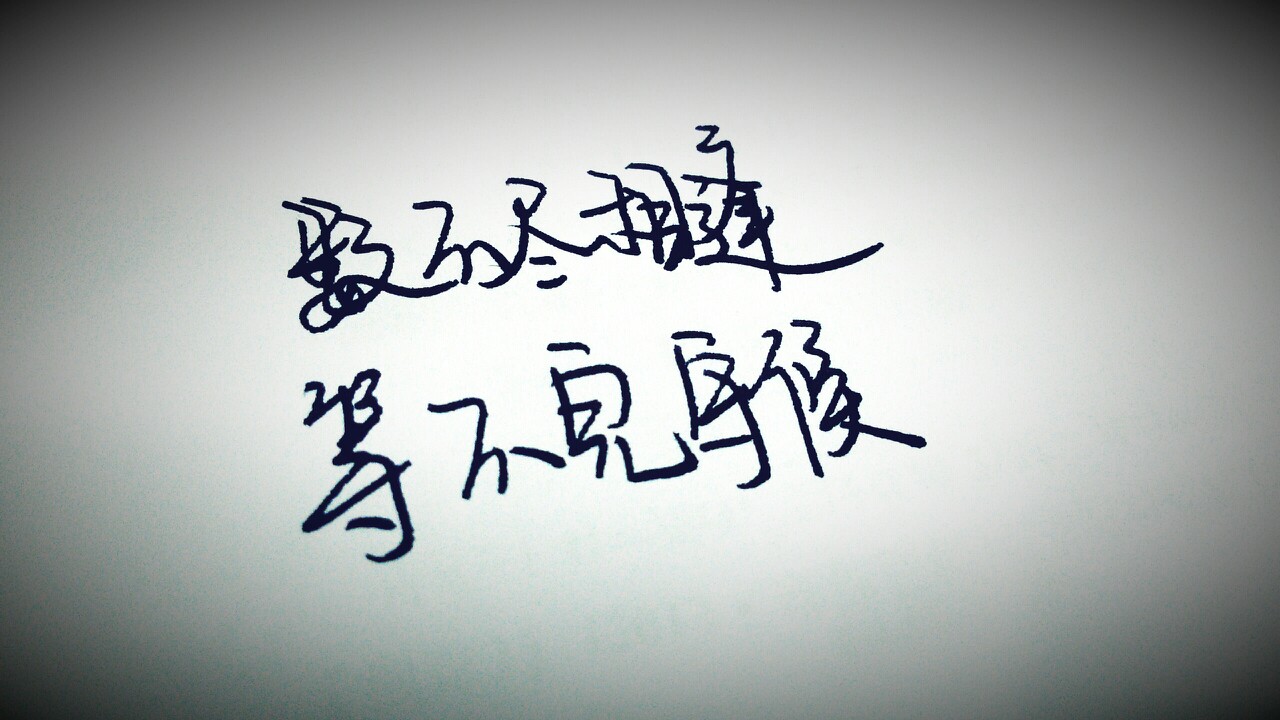 数不尽相逢
等不完守候